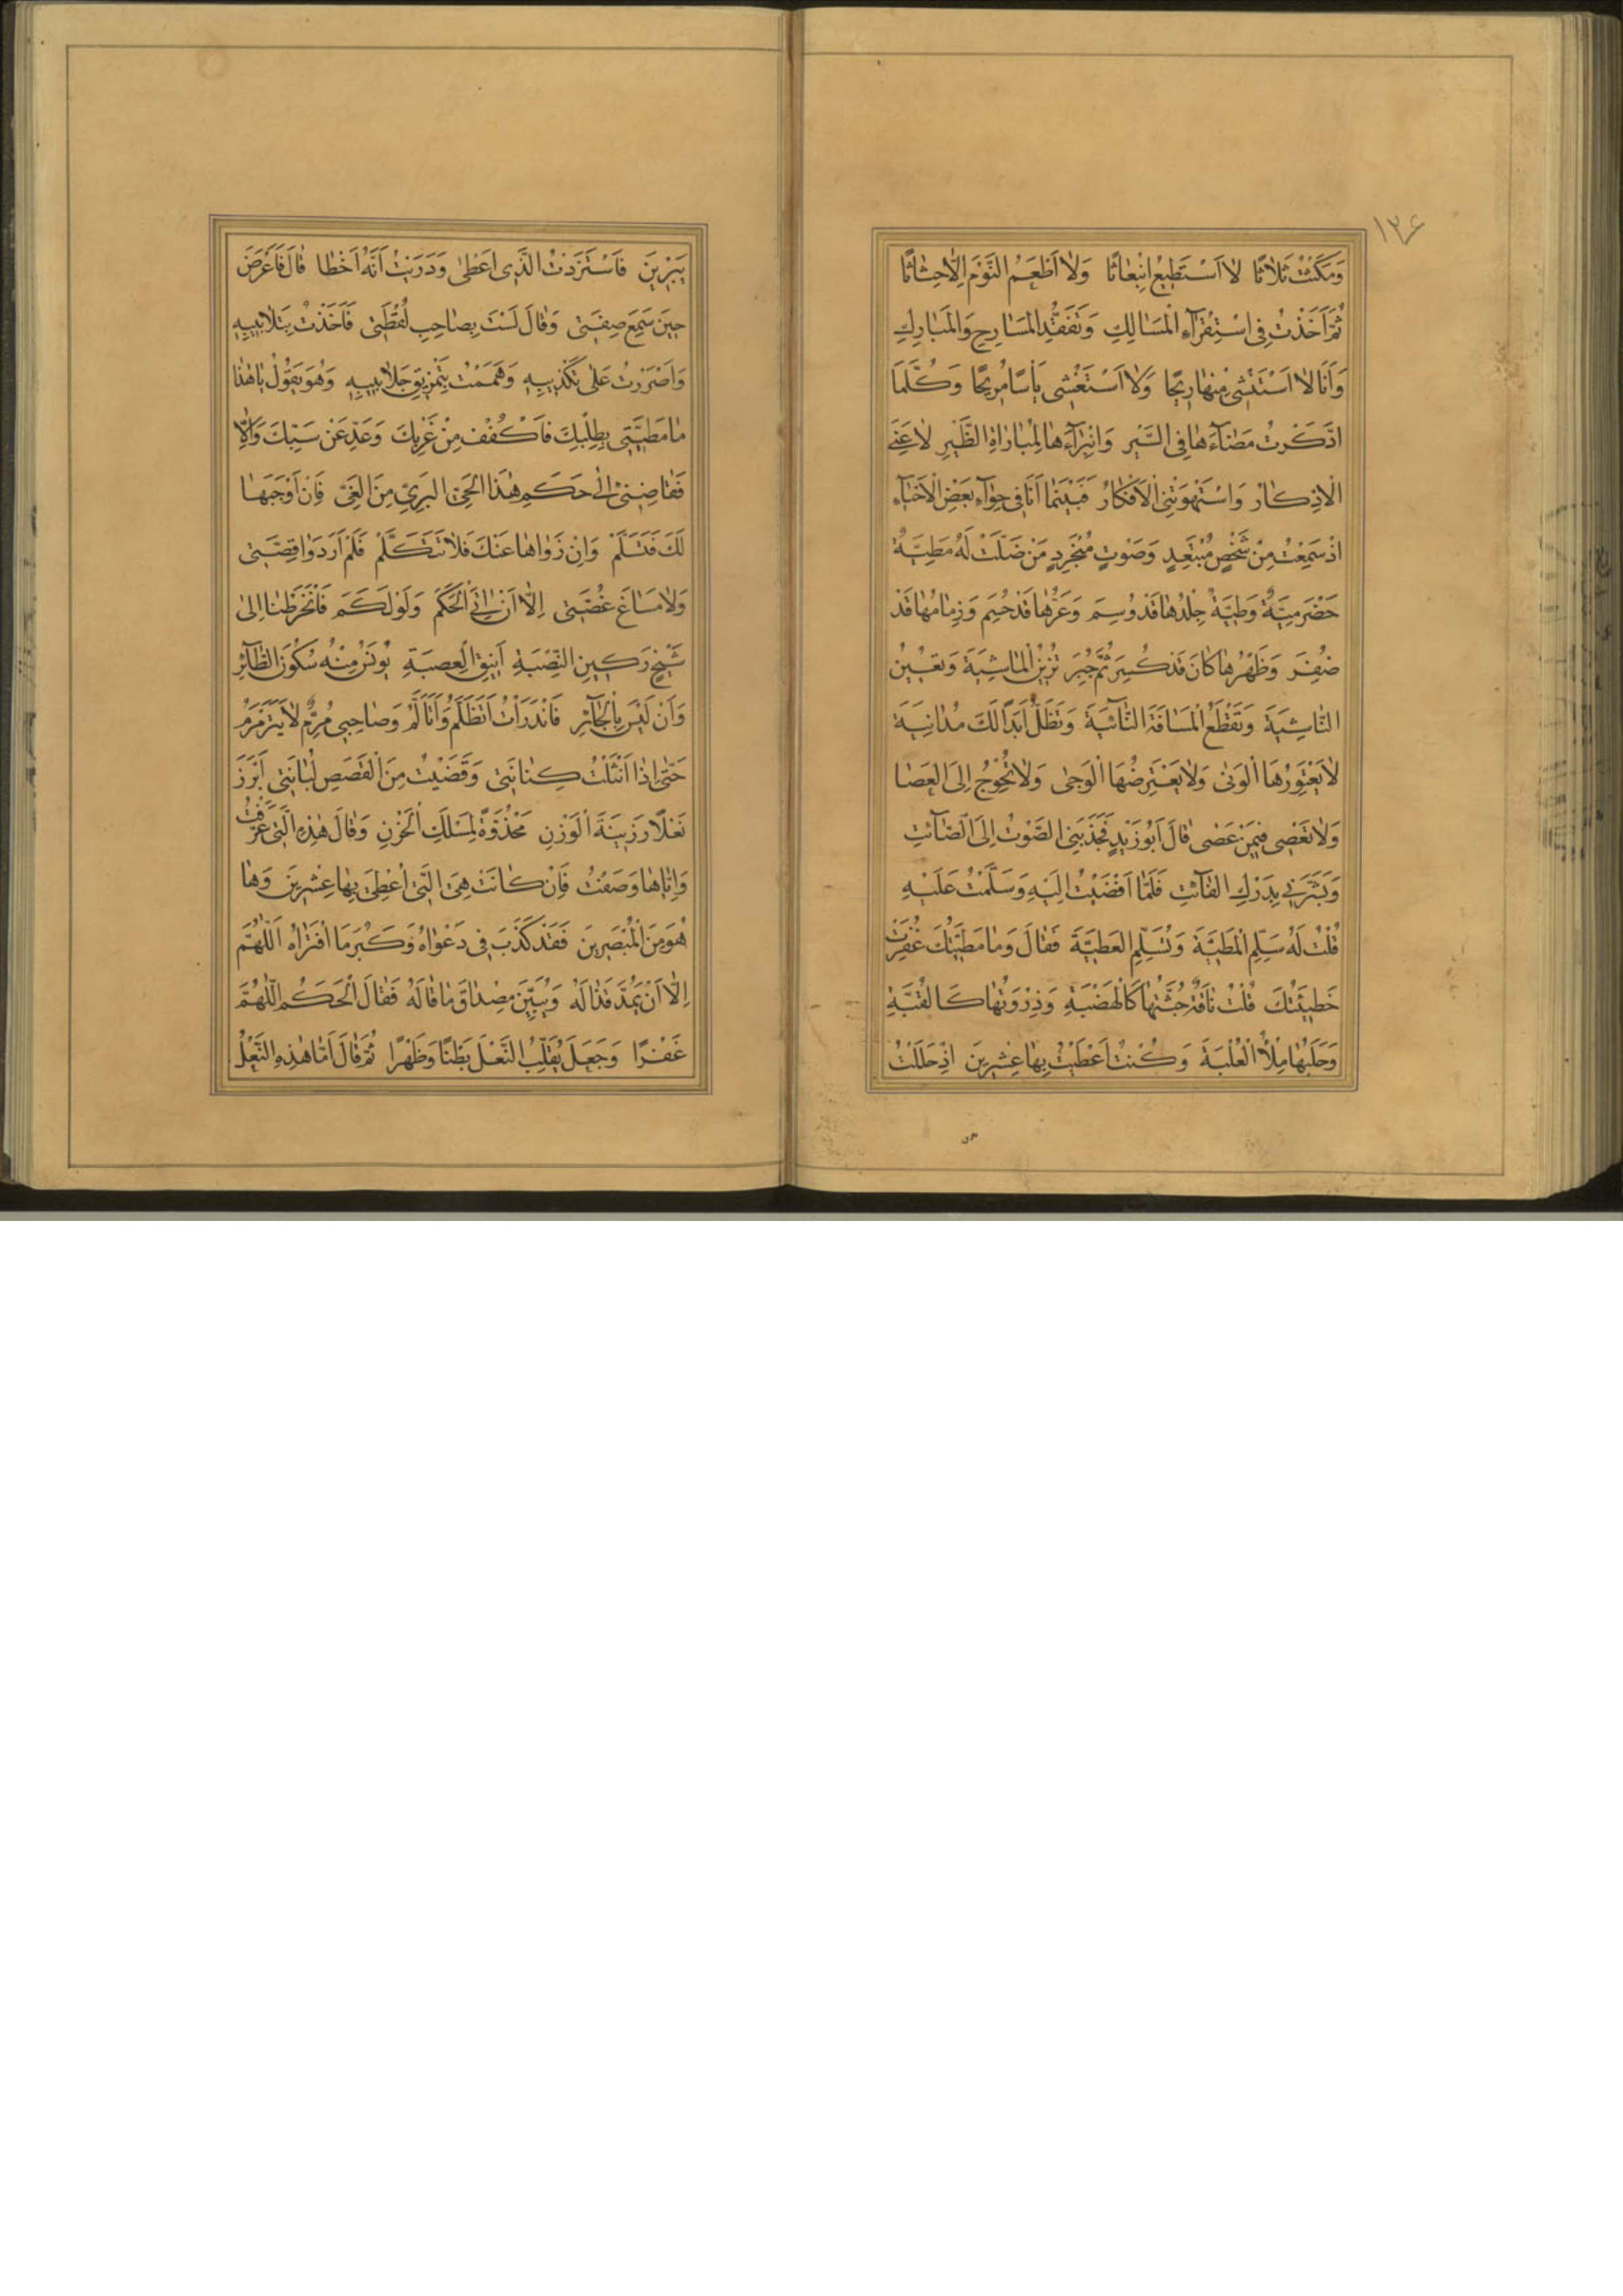 ١٣٤
وَمَكَثْتُ ثَلَاثًا لَا اَسْتَطِيعُ انْبِعَاثًا وَلَا اَطْعَمُ النَّوْمَ اِلَّا حِثَاثًا
ثُمَّ اَخَذْتُ فِي اسْتِقْرَآءِ الْمَسَالِكِ وَتَفَقُّدِ الْمَسَارِحِ وَالْمَبَارِكِ
وَاَنَا لَا اَسْتَنْشِي مِنْهَا رِيحًا وَلَا اَسْتَغْشِي يَأْسًا مُرِيحًا وَكُلَّمَا
ادَّكَرْتُ مَضَآءَهَا فِي السَّيْرِ وَانْبِرَآءَهَا لِمُبَارَاةِ الطَّيْرِ لَاعَنِي
الْاِذِّكَارُ وَاسْتَهْوَتْنِي الْاَفْكَارُ فَبَيْنَمَا اَنَا فِي حِوَآءِ بَعْضِ الْاَحْيَآءِ
اِذْ سَمِعْتُ مِنْ شَخْصٍ مُبْتَعِدٍ وَصَوْتٍ مُنْجَرِدٍ مَنْ ضَلَّتْ لَهُ مَطِيَّةٌ
حَضْرَمِيَّةٌ وَطِيَّةٌ جِلْدُهَا قَدْ وُسِمَ وَعَرُّهَا قَدْ حُسِمَ وَزِمَامُهَا قَدْ
ضُفِرَ وَظَهْرُهَا كَانَ قَدْ كُسِرَ ثُمَّ جُبِرَ تُزَيِّنُ الْمَاشِيَةَ وَتُعِينُ
النَّاشِيَةَ وَتَقْطَعُ الْمَسَافَةَ النَّآئِيَةَ وَتَظَلُّ اَبَدًا لَكَ مُدَانِيَةً
لَا يَعْتَوِرُهَا الْوَنٰى وَلَا يَعْتَرِضُهَا الْوَجٰى وَلَا تُحْوِجُ اِلَى الْعَصَا
وَلَا تَعْصِي فِيمَنْ عَصٰى قَالَ اَبُو زَيْدٍ فَجَذَبَنِي الصَّوْتُ اِلَى الصَّآئِتِ
وَبَشَّرَنِي بِدَرْكِ الْفَآئِتِ فَلَمَّا اَفْضَيْتُ اِلَيْهِ وَسَلَّمْتُ عَلَيْهِ
قُلْتُ لَهُ سَلِّمِ الْمَطِيَّةَ وَتَسَلَّمِ الْعَطِيَّةَ فَقَالَ وَمَا مَطِيَّتُكَ غُفِرَتْ
خَطِيئَتُكَ قُلْتُ نَاقَةٌ جُثَّتُهَا كَالْهَضْبَةِ وَذِرْوَتُهَا كَالْقُبَّةِ
وَحَلَبُهَا مِلْأُ الْعُلْبَةِ وَكُنْتُ اُعْطِيتُ بِهَا عِشْرِينَ اِذْ حَلَلْتُ
يَبْرِينَ فَاسْتَزَدْتُ الَّذِي اَعْطٰى وَدَرَيْتُ اَنَّهُ اَخْطَا قَالَ فَاَعْرَضَ
حِينَ سَمِعَ صِفَتِي وَقَالَ لَسْتَ بِصَاحِبِ لُقَطَتِي فَاَخَذْتُ بِتَلَابِيبِهِ
وَاَصْرَرْتُ عَلَى تَكْذِيبِهِ وَهَمَمْتُ بِتَمْزِيقِ جَلَابِيبِهِ وَهُوَ يَقُولُ يَا هٰذَا
مَا مَطِيَّتِي بِطِلْبِكَ فَاكْفُفْ مِنْ غَرْبِكَ وَعَدِّ عَنْ سَبِّكَ وَاِلَّا
فَقَاضِنِي اِلٰى حَكَمِ هٰذَا الْحَيِّ الْبَرِيِّ مِنَ الْغَيِّ فَاِنْ اَوْجَبَهَا
لَكَ فَتَسَلَّمْ وَاِنْ زَوَاهَا عَنْكَ فَلَا تَتَكَلَّمْ فَلَمْ اَرَ دَوَا قِصَّتِي
وَلَا مَسَاغَ غُصَّتِي اِلَّا اَنْ اٰتِيَ الْحَكَمَ وَلَوْ لَكَمَ فَانْخَرَطْنَا اِلٰى
شَيْخٍ رَكِينِ النِّصْبَةِ اَنِيقِ الْعِصْبَةِ يُونَسُ مِنْهُ سُكُونُ الطَّآئِرِ
وَاَنْ لَيْسَ بِالْجَآئِرِ فَانْدَرَأْتُ اَتَظَلَّمُ وَاَتَاَلَّمُ وَصَاحِبِي مُرِمٌّ لَا يَتَرَمْرَمُ
حَتّٰى اِذَا انْتَثَلْتُ كِنَانَتِي وَقَضَيْتُ مِنَ الْقَصَصِ لُبَانَتِي اَبْرَزَ
نَعْلًا رَزِينَةَ الْوَزْنِ مَحْذُوَّةً لِمَسْلَكِ الْحَزْنِ وَقَالَ هٰذِهِ الَّتِي عَرَّفْتُ
وَاِيَّاهَا وَصَفْتُ فَاِنْ كَانَتْ هِيَ الَّتِي اُعْطِيَ بِهَا عِشْرِينَ وَهَا
هُوَ مِنَ الْمُبْصِرِينَ فَقَدْ كَذَبَ فِي دَعْوَاهُ وَكَبُرَ مَا افْتَرَاهُ اَللّٰهُمَّ
اِلَّا اَنْ يَمُدَّ قَذَالَهُ وَيُبَيِّنَ مِصْدَاقَ مَا قَالَهُ فَقَالَ الْحَكَمُ اللّٰهُمَّ
غَفْرًا وَجَعَلَ يُقَلِّبُ النَّعْلَ بَطْنًا وَظَهْرًا ثُمَّ قَالَ اَمَّا هٰذِهِ النَّعْلُ